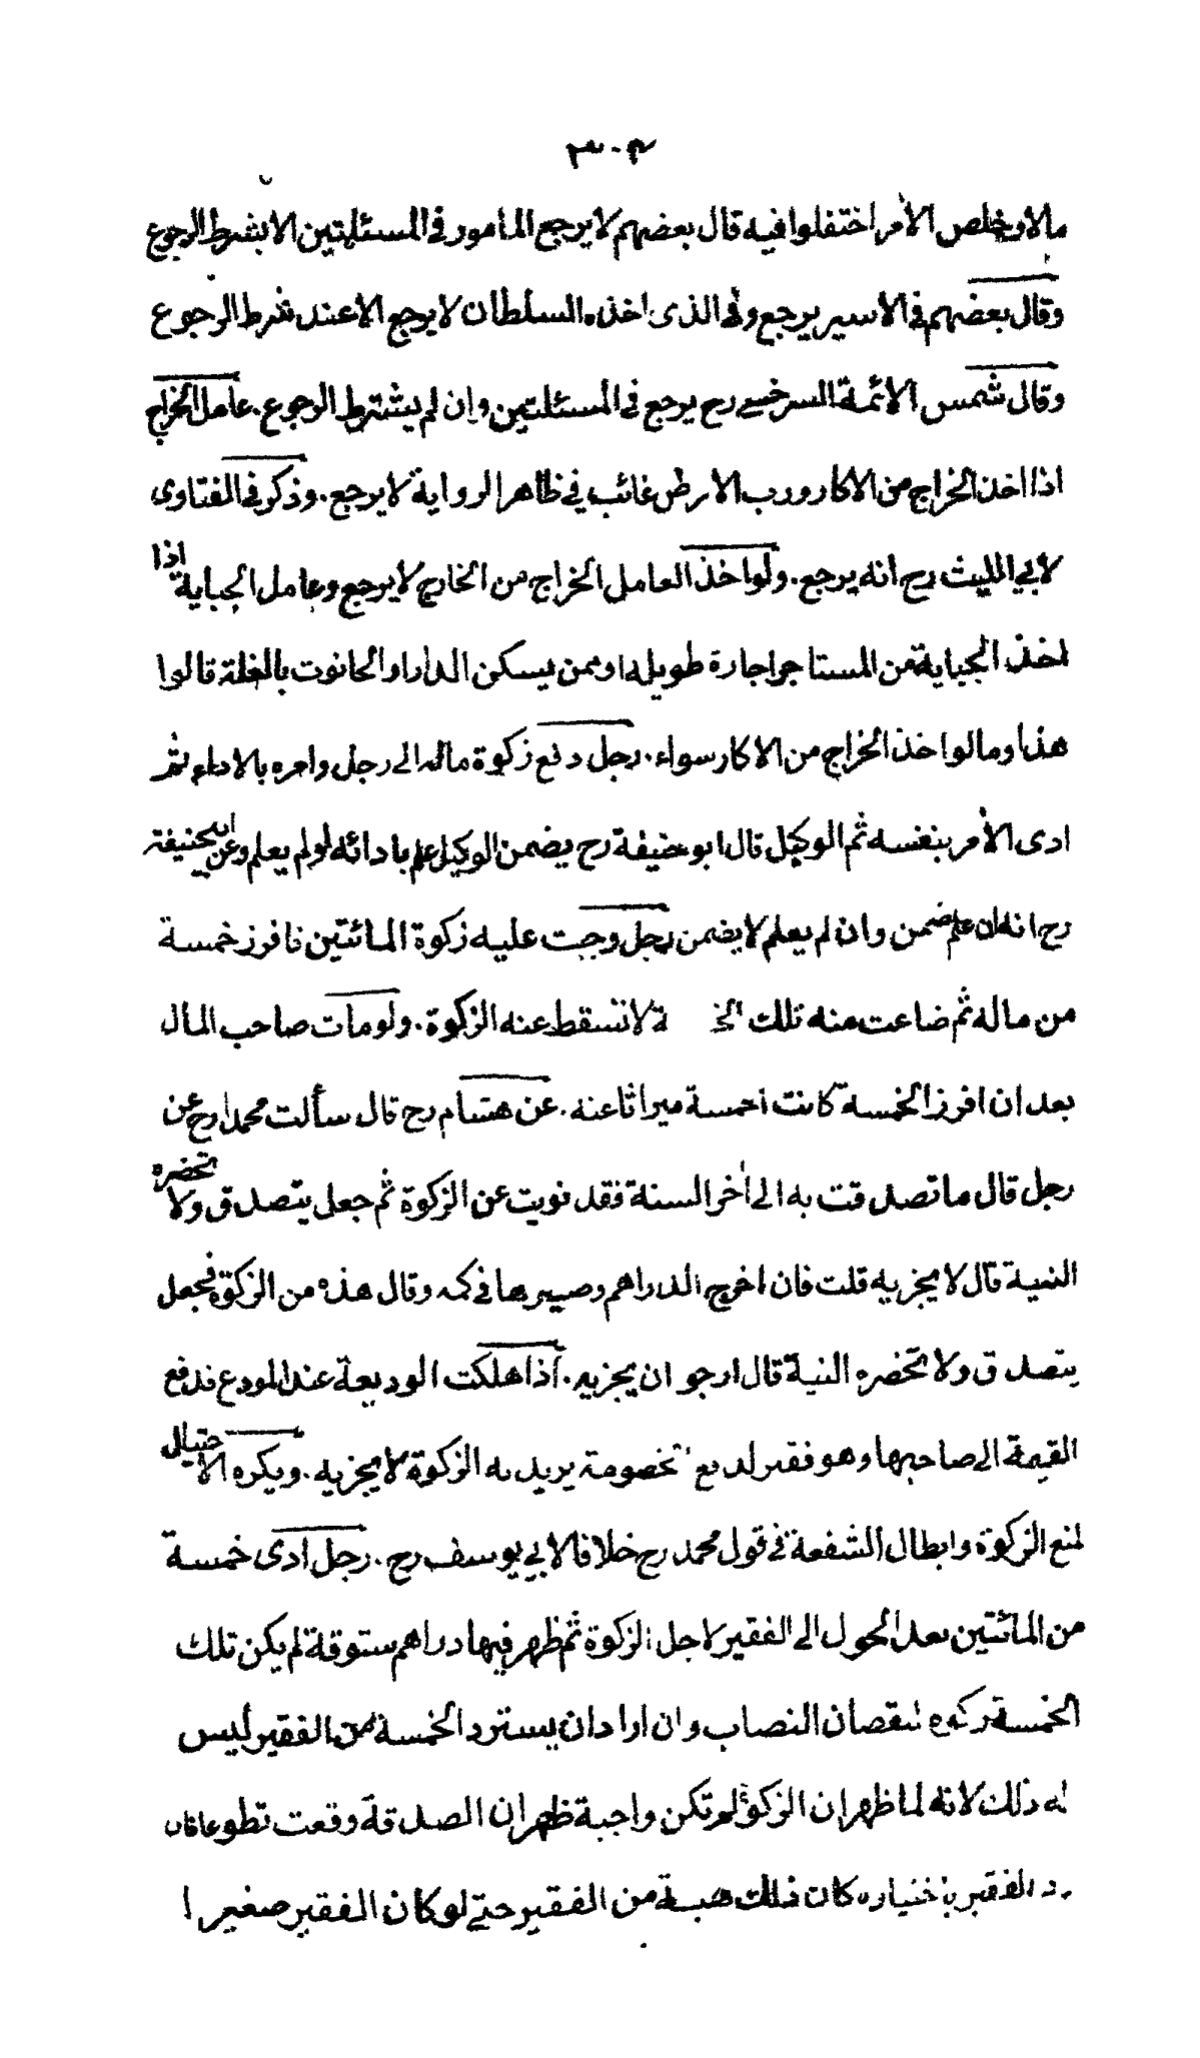 ٣٠٤
مالا وخلص الأمر اختفلوا فيه قال بعضهم لا يرجع المأمور في المسئلتين الا بشرط الرجوع
وقال بعضهم في الاسير يرجع وفى الذى اخذه السلطان لا يرجع الا عند شرط الرجوع
وقال شمس الائمة السرخسي رح يرجع في المسئلتين وإن لم يشترط الرجوع. عامل الخراج
اذا اخذ الخراج من الاكار ورب الارض غائب في ظاهر الرواية لا يرجع. وذكر في الفتاوى
لابي الليث رح انه يرجع. ولو اخذ العامل الخراج من الخارج لا يرجع وعامل الجباية اذا
اخذ الجباية من المستاجر اجارة طويله او ممن يسكن الدار او الحانوت بالغلة قالوا
هذا وما لو اخذ الخراج من الاكار سواء. رجل دفع زكوة ماله الى رجل وامره بالاداء ثم
ادى الأمر بنفسه ثم الوكيل قال ابو حنيفة رح يضمن الوكيل علم بادائه او لم يعلم وعن ابيحنيفة
رح انه ان علم ضمن وان لم يعلم لا يضمن رجل وجبت عليه زكوة المائتين فافرز خمسة
من ماله ثم ضاعت منه تلك لا تسقط عنه الزكوة. ولو مات صاحب المال
بعد ان افرز الخمسة كانت الخمسة ميراثا عنه. عن هشام رح قال سألت محمدا رح عن
رجل قال ما تصدقت به الى أخر السنة فقد نويت عن الزكوة ثم جعل يتصدق ولا تحضره
النية قال لا يجزيه قلت فان اخرج الدراهم وصيرها في كمه وقال هذه من الزكوة فجعل
يتصدق ولا تحضره النية قال ارجو ان يجزيه. اذا هلكت الوديعة عند المودع فدفع
القيمة الى صاحبها وهو فقير لدفع الخصومة يريد به الزكوة لا يجزيه. ويكره الاحتيال
لمنع الزكوة وابطال الشفعة في قول محمد رح خلافا لابي يوسف رح. رجل ادى خمسة
من المائتين بعد الحول الى الفقير لاجل الزكوة ثم ظهر فيها دراهم ستوقة لم يكن تلك
الخمسة زكوة لنقصان النصاب وان اراد ان يسترد الخمسة من الفقير ليس
له ذلك لانه لما ظهر ان الزكوة لم تكن واجبة ظهر ان الصدقة وقعت تطوعا فان
رد الفقير باختياره كان ذلك هبة من الفقير حتى لو كان الفقير صغيرا